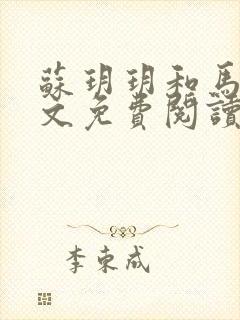 蘇玥玥和馬
文免費閱讀
李東成